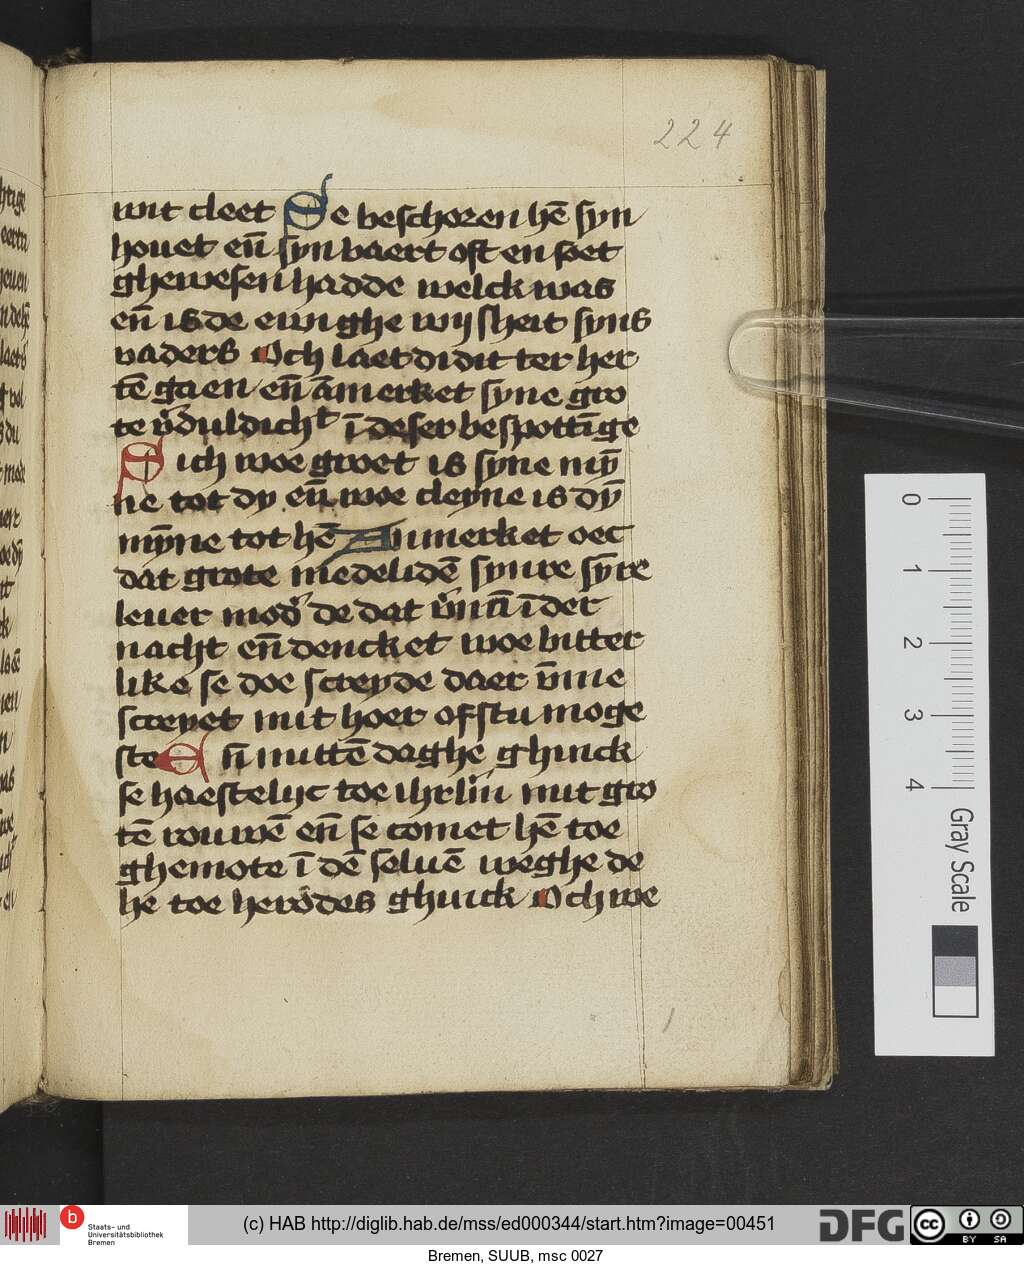 224
wit cleet Se beschoren hē syn
houet eñ syn baert oft en soet
ghewesen hadde welck was
eñ is de ewighe wijsheit syns
vaders Och laet di dit ter her
tē gaen eñ āmerket syne gro
te v̄duldicht ī deser bespottīge
Sich woe groet is syne mȳ
ne tot dy eñ woe cleyne is dȳ
mȳne tot hē Anmerket oec
dat grote medelidē synre syre
leuer mod' de dat ī der
nacht eñ dencket woe bitter
like se doe screyde daer v̄me
screyet mit hoer ofstu moge
ste Eñ mittē daghe ghinck
se haestelijc toe ihrl'm mit gro
tē rouwē eñ se comet hē toe
ghemote ī dē seluē weghe de
he toe herodes ghinck Och we
htige
eertn
laet
0
1
2
3
4
Gray Scale
b
Staats- und
Universitätsbibliothek
Bremen
(c) HAB http://diglib.hab.de/mss/ed000344/start.htm?image=00451
DFG
cc
BY SA
Bremen, SUUB, msc 0027